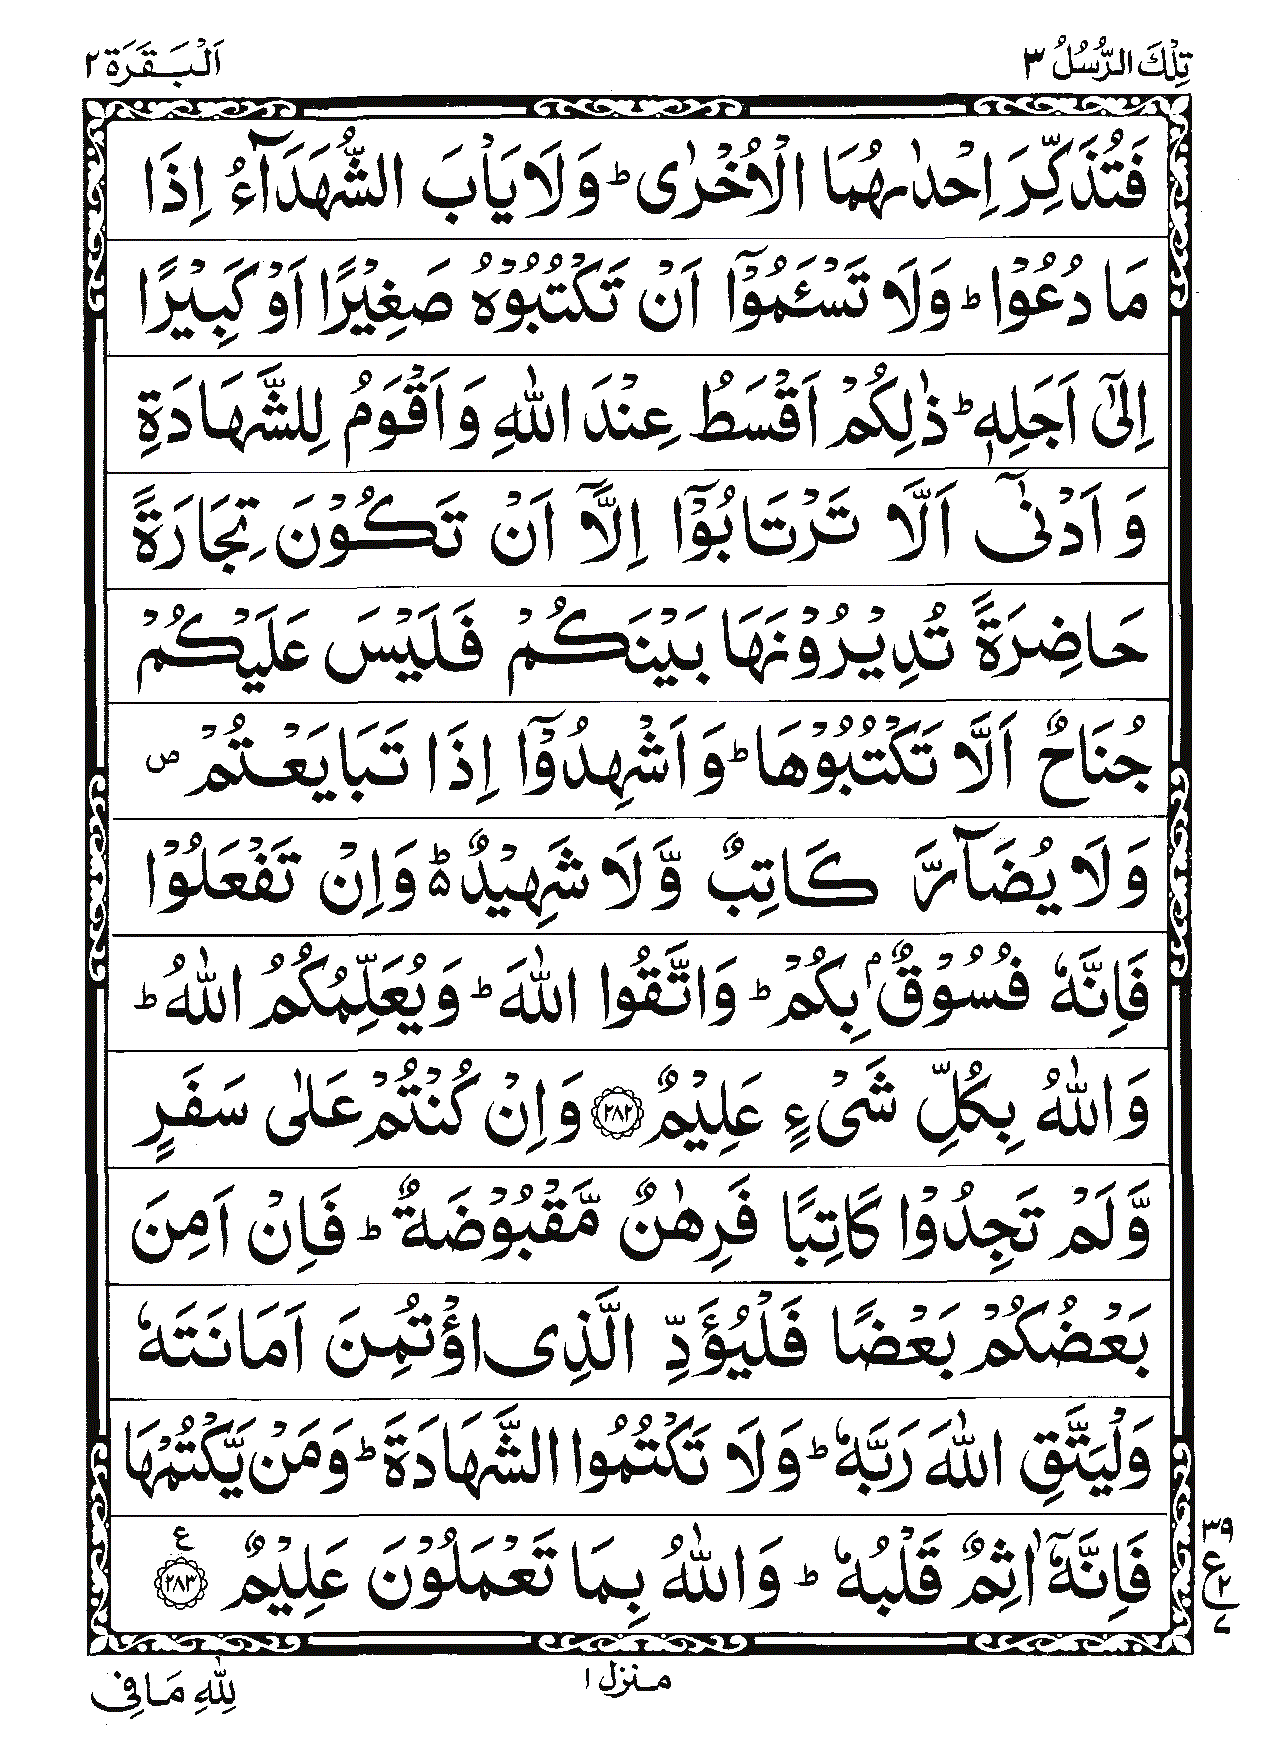 تِلْكَ الرُّسُلُ ٣
اَلْبَقَرَة ٢
فَتُذَكِّرَ اِحْدٰىهُمَا الْاُخْرٰى ؕ وَلَا يَاْبَ الشُّهَدَآءُ اِذَا
مَا دُعُوْا ؕ وَلَا تَسْـَٔمُوْۤا اَنْ تَكْتُبُوْهُ صَغِيْرًا اَوْ كَبِيْرًا
اِلٰۤى اَجَلِهٖ ؕ ذٰلِكُمْ اَقْسَطُ عِنْدَ اللّٰهِ وَاَقْوَمُ لِلشَّهَادَةِ
وَاَدْنٰۤى اَلَّا تَرْتَابُوْۤا اِلَّاۤ اَنْ تَكُوْنَ تِجَارَةً
حَاضِرَةً تُدِيْرُوْنَهَا بَيْنَكُمْ فَلَيْسَ عَلَيْكُمْ
جُنَاحٌ اَلَّا تَكْتُبُوْهَا ؕ وَاَشْهِدُوْۤا اِذَا تَبَايَعْتُمْ ۪
وَلَا يُضَآرَّ كَاتِبٌ وَّلَا شَهِيْدٌ ؕ۬ وَاِنْ تَفْعَلُوْا
فَاِنَّهٗ فُسُوْقٌۢ بِكُمْ ؕ وَاتَّقُوا اللّٰهَ ؕ وَيُعَلِّمُكُمُ اللّٰهُ ؕ
وَاللّٰهُ بِكُلِّ شَىْءٍ عَلِيْمٌ ﴿٢٨٢﴾ وَاِنْ كُنْتُمْ عَلٰى سَفَرٍ
وَّلَمْ تَجِدُوْا كَاتِبًا فَرِهٰنٌ مَّقْبُوْضَةٌ ؕ فَاِنْ اَمِنَ
بَعْضُكُمْ بَعْضًا فَلْيُؤَدِّ الَّذِى اؤْتُمِنَ اَمَانَتَهٗ
وَلْيَتَّقِ اللّٰهَ رَبَّهٗ ؕ وَلَا تَكْتُمُوا الشَّهَادَةَ ؕ وَمَنْ يَّكْتُمْهَا
فَاِنَّهٗۤ اٰثِمٌ قَلْبُهٗ ؕ وَاللّٰهُ بِمَا تَعْمَلُوْنَ عَلِيْمٌ ﴿٢٨٣﴾ ع
٣٩
ع
٢
٧
منزل ١
لِلّٰهِ مَا فِى